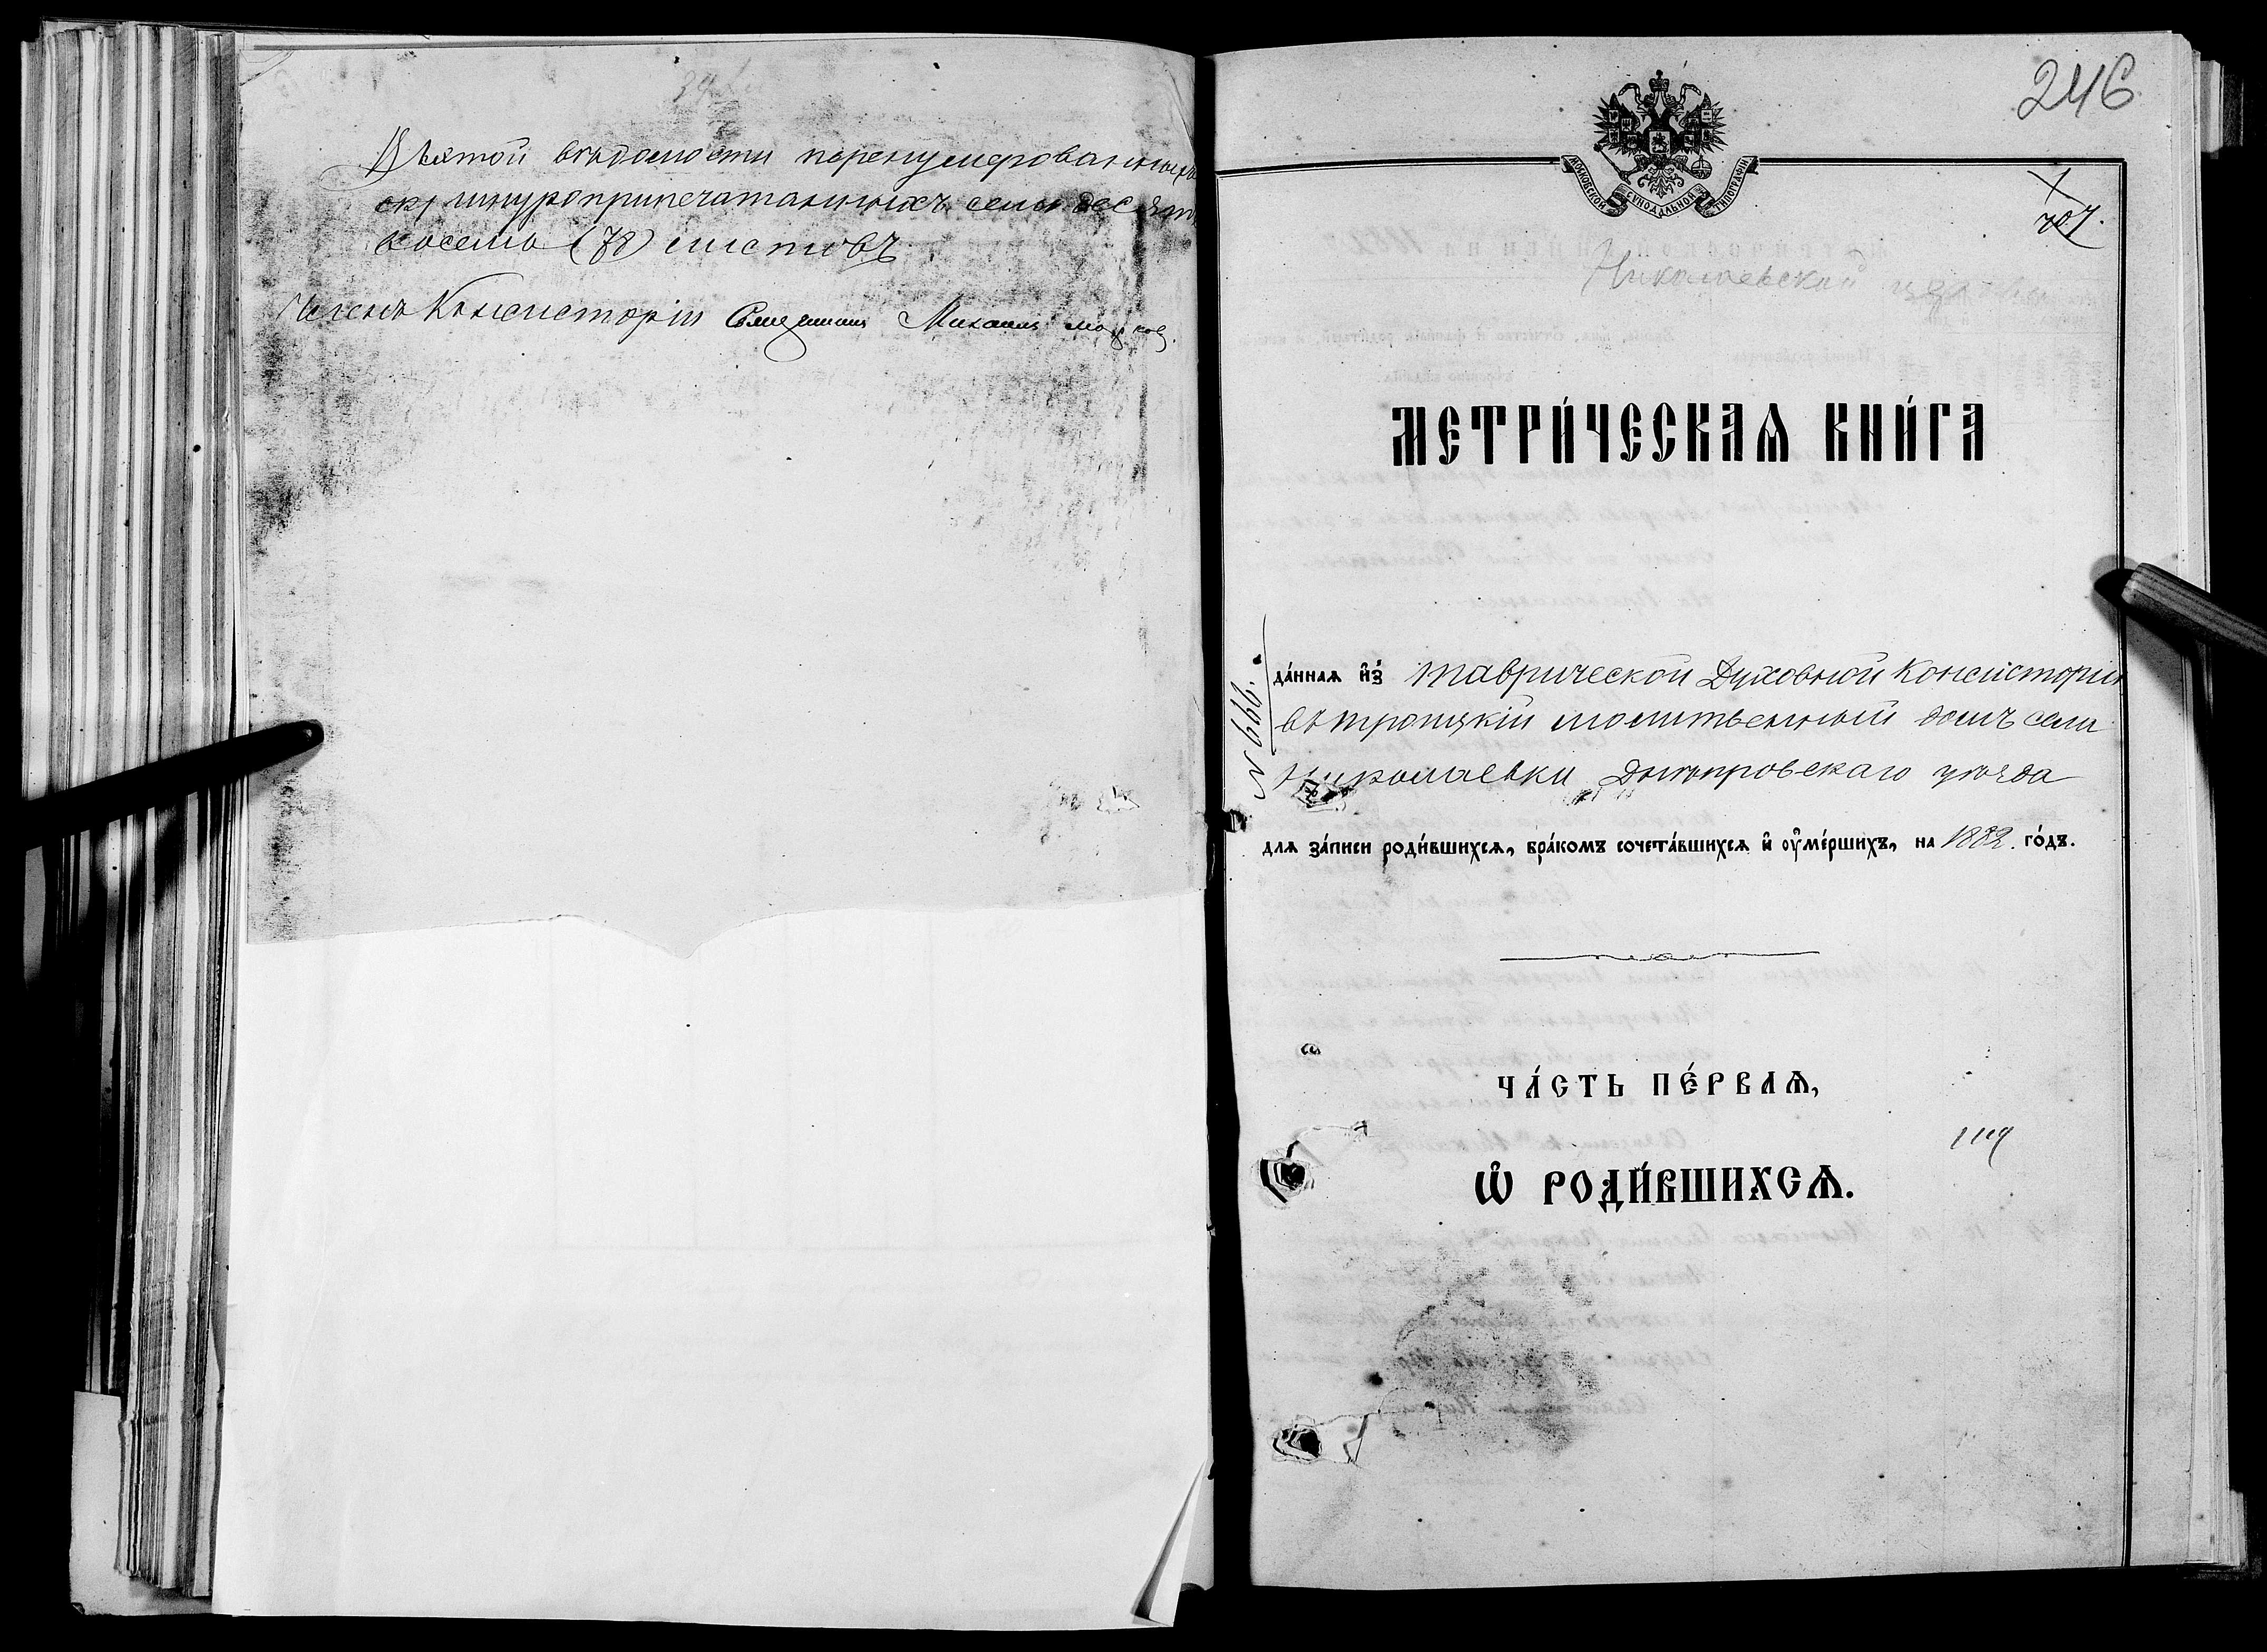 Въ этой вѣдомости перенумерованныхъ
скрѣ шнуроприпечатанныхъ семьдесятъ
восемь (78) листовъ
Членъ Консисторіи Священникъ Михаилъ
246
МОСКОВСКОЙ СѴНОДАЛЬНОЙ ТИПОГРАФІИ
707.
Николаевской церкви
МЕТРИ́ЧЕСКАѦ КНИ́ГА
№ 666.
да́ннаѧ и҆з̾ Таврической Духовной Консисторіи
въ Троицкій молитвенный домъ села
Николаевки Днѣпровскаго уѣзда
длѧ за́писи роди́вшихсѧ, бра́комъ сочета́вшихсѧ и҆ ᲂу҆ме́ршихъ, на 1882. го́дъ.
ЧА́СТЬ ПЕ́РВАѦ,
119
Ѽ РОДИ́ВШИХСѦ.